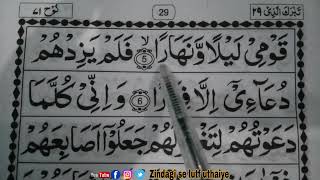 تَبٰرَكَ الَّذِىْ ٢٩
29
نُوْح ٧١
قَوْمِىْ لَيْلًا وَّنَهَارًا ۙ 5 فَلَمْ يَزِدْهُمْ
دُعَآءِىْٓ اِلَّا فِرَارًا 6 وَاِنِّىْ كُلَّمَا
دَعَوْتُهُمْ لِتَغْفِرَ لَهُمْ جَعَلُوْٓا اَصَابِعَهُمْ
You Tube Zindagi se lutf uthaiye